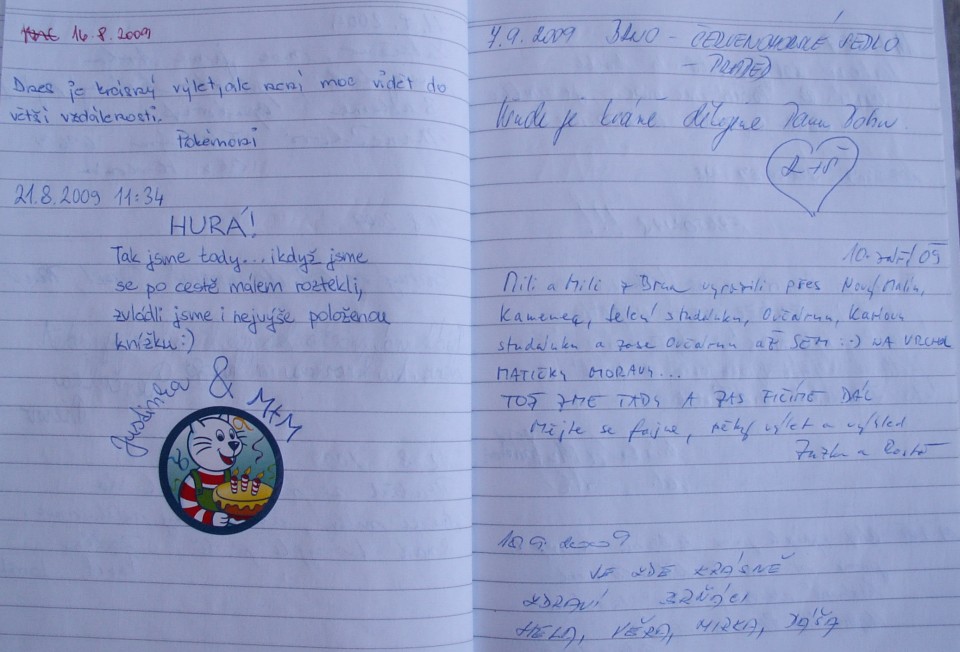 16.8.2009
Dnes je krásný výlet, ale není moc vidět do
větší vzdálenosti.
Pokémoni
21.8.2009 11:34
HURÁ!
Tak jsme tady... ikdyž jsme
se po cestě málem roztekli,
zvládli jsme i nejvýše položenou
knížku:)
Justinka & M+M
7.9.2009 BRNO - ČERVENOHORSKÉ SEDLO
- PRADĚD
Všude je krásně děkujeme
10. září/09
Mili a Mili z Brna vyrazili přes Nový Malín,
Kamenec, studánku, Ovčárnu, Karlovu
studánku a zase Ovčárnu až SEM :-) NA VRCHOL
MATIČKY MORAVY...
TOŽ ZME TADY A ZAS FIČÍME DÁL
Mějte se fajne, pěkný výlet a výhled
Zuzka a Rosťa
18.9. 2009
JE ZDE KRÁSNĚ
ZDRAVÍ BRŇÁCI
HELA, VĚRA, MIRKA, DÁŠA